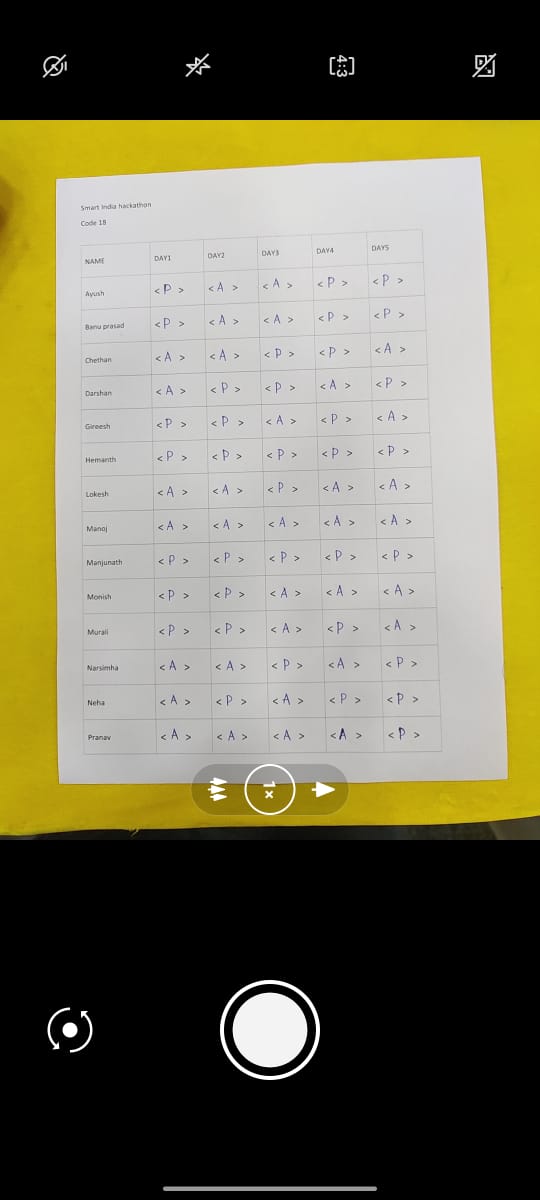 Smart India hackathon
Code 18
NAME DAY1 DAY2 DAY3 DAY4 DAY5
Ayush < P > < A > < A > < P > < P >
Banu prasad < P > < A > < A > < P > < P >
Chethan < A > < A > < P > < P > < A >
Darshan < A > < P > < P > < A > < P >
Gireesh < P > < P > < A > < P > < A >
Hemanth < P > < P > < P > < P > < P >
Lokesh < A > < A > < P > < A > < A >
Manoj < A > < A > < A > < A > < A >
Manjunath < P > < P > < P > < P > < P >
Monish < P > < P > < A > < A > < A >
Murali < P > < P > < A > < P > < A >
Narsimha < A > < A > < P > < A > < P >
Neha < A > < P > < A > < P > < P >
Pranav < A > < A > < A > < A > < P >
1×